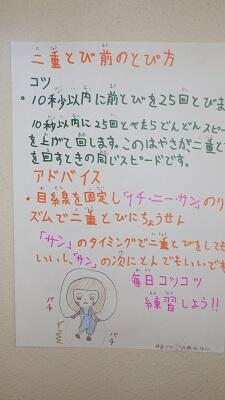 二重とび前のとび方
コツ
・10秒以内に前とびを25回とびま
10秒以内に25回とべたらどんどんスピー
を上げて回します。このはやさが二重と
を回すときの同じスピードです。
アドバイス
・目線を固定し「イチ・ニー・サン」のリ
ズムで二重とびにちょうせん
「サン」のタイミングで二重とびをしても
いいし、「サン」の次にとんでもいいです
毎日コツコツ
練習しよう!!
パチ
パチ